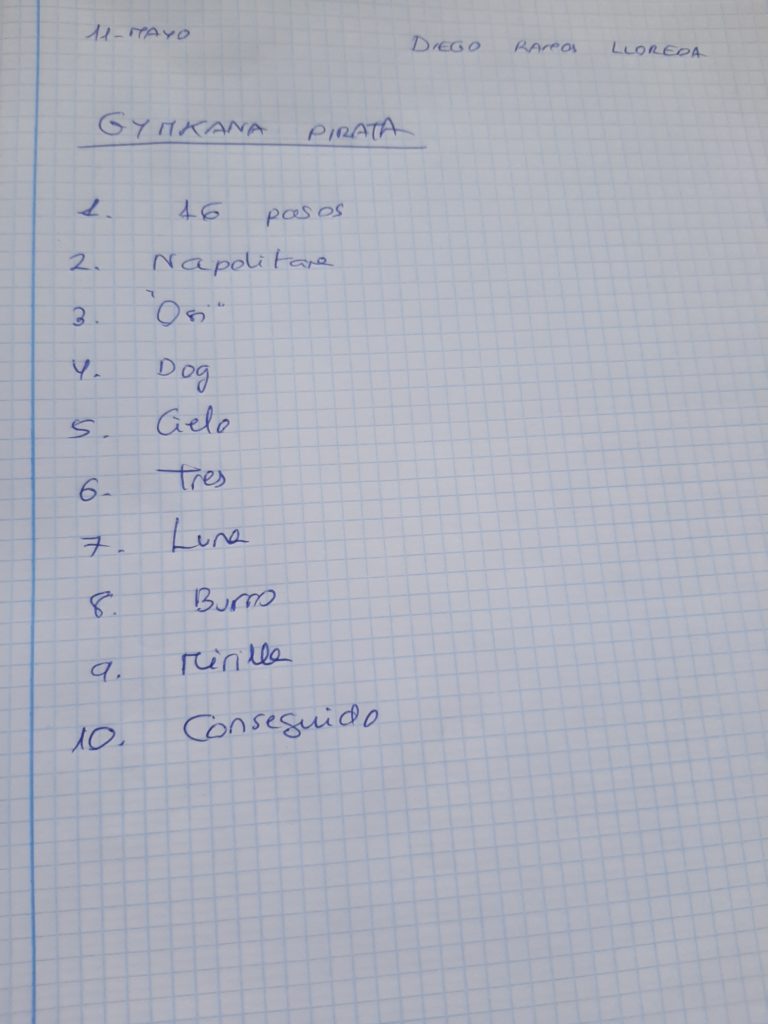 11-MAYO
DIEGO RAMOS LLOREDA
GYMKANA PIRATA
1. 16 pasos
2. Napolitana
3.
4. Dog
5. Cielo
6- Tres
7. Luna
8. Burro
9. Mirilla
10. Conseguido